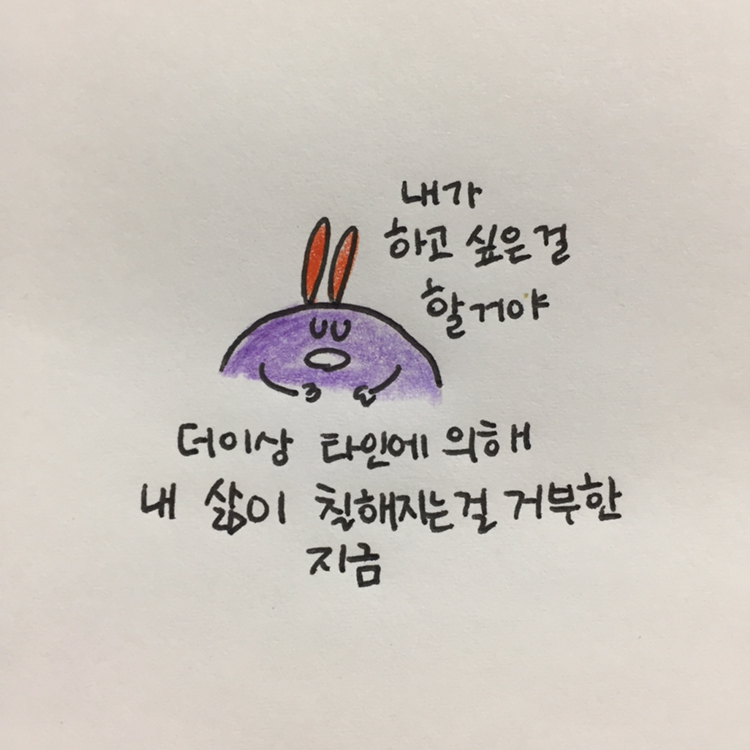 내가
하고 싶은 걸
할거야
더이상 타인에 의해
내 삶이 칠해지는걸 거부한
지금